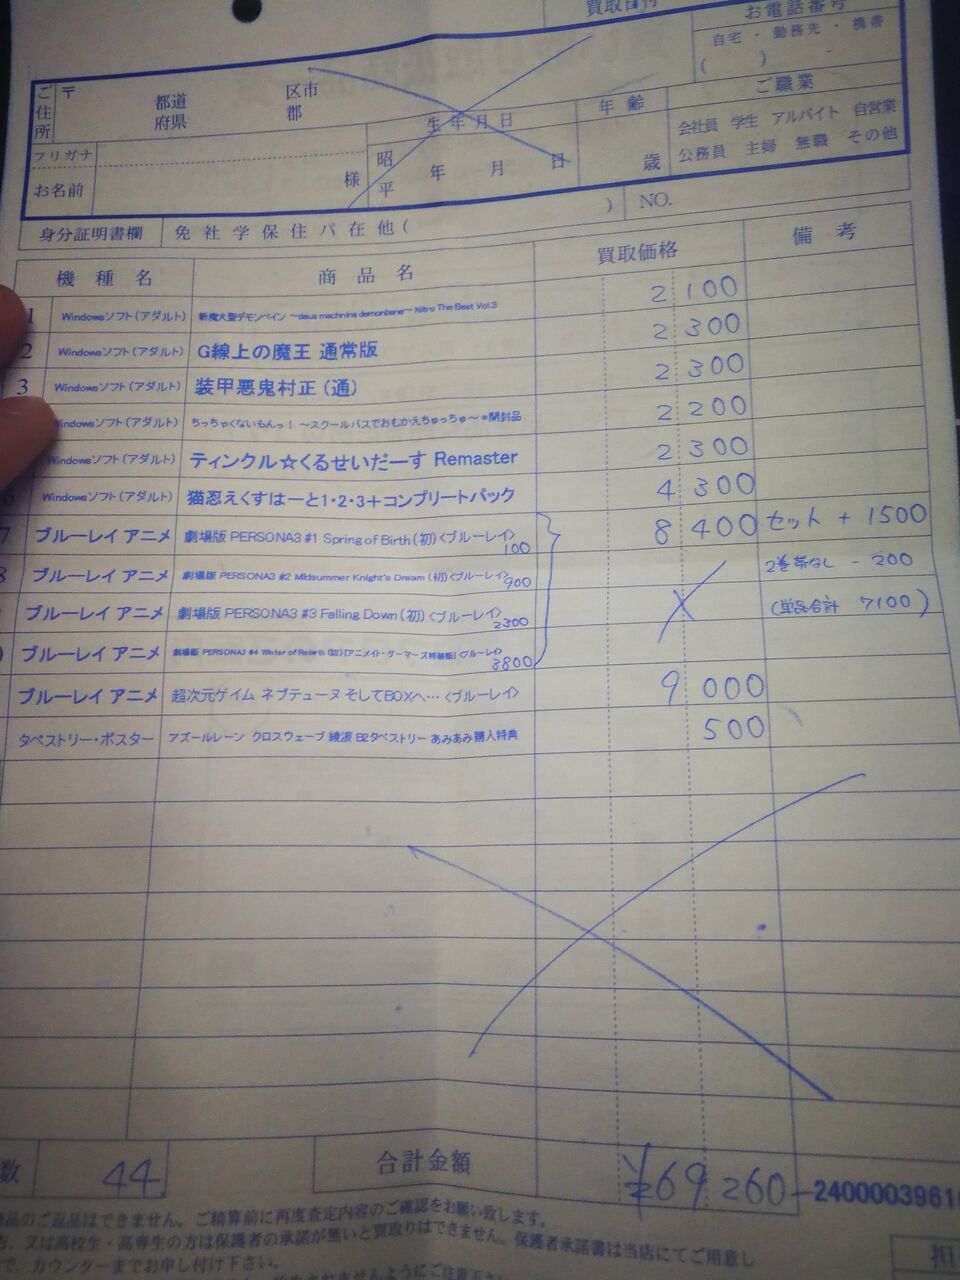 買取日付
お電話番号
自宅 ・ 勤務先 ・ 携帯
( ) -
ご住所
〒
都道府県
区市郡
生年月日
年齢
ご職業
フリガナ
お名前
様
昭平
年 月 日
歳
会社員 学生 アルバイト 自営業
公務員 主婦 無職 その他
身分証明書欄
免 社 学 保 住 パ 在 他 ( )
NO.
機種名 商品名 買取価格 備考
1 Windowsソフト(アダルト) 斬魔大聖デモンベイン ～deus machnina demonbane～ Nitro The Best Vol.3 2 100
2 Windowsソフト(アダルト) G線上の魔王 通常版 2 300
3 Windowsソフト(アダルト) 装甲悪鬼村正(通) 2 300
Windowsソフト(アダルト) ちっちゃくないもんっ! ～スクールバスでおむかえちゅっちゅ～*開封品 2 200
Windowsソフト(アダルト) ティンクル☆くるせいだーす Remaster 2 300
6 Windowsソフト(アダルト) 猫忍えくすはーと1・2・3+コンプリートパック 4 300
7 ブルーレイ アニメ 劇場版 PERSONA3 #1 Spring of Birth(初)<ブルーレイ> 100 8 400 セット + 1500
8 ブルーレイ アニメ 劇場版 PERSONA3 #2 Midsummer Knight's Dream(初)<ブルーレイ> 900 2巻帯なし - 200
ブルーレイ アニメ 劇場版 PERSONA3 #3 Falling Down(初)<ブルーレイ> 2300 (単品合計 7100)
ブルーレイ アニメ 劇場版 PERSONA3 #4 Winter of Rebirth(初)[アニメイト・ゲーマーズ特装版]<ブルーレイ> 3800
ブルーレイ アニメ 超次元ゲイム ネプテューヌ そしてBOXへ…<ブルーレイ> 9 000
タペストリー・ポスター アズールレーン クロスウェーブ 綾波 B2タペストリー あみあみ購入特典 500
数 44
合計金額 ¥69 260
2400003961
商品のご返品はできません。ご精算前に再度査定内容のご確認をお願い致します。
方、又は高校生・高専生の方は保護者の承諾が無いと買取りはできません。保護者承諾書は当店にてご用意し
で、カウンターまでお申し付け下さい。
担